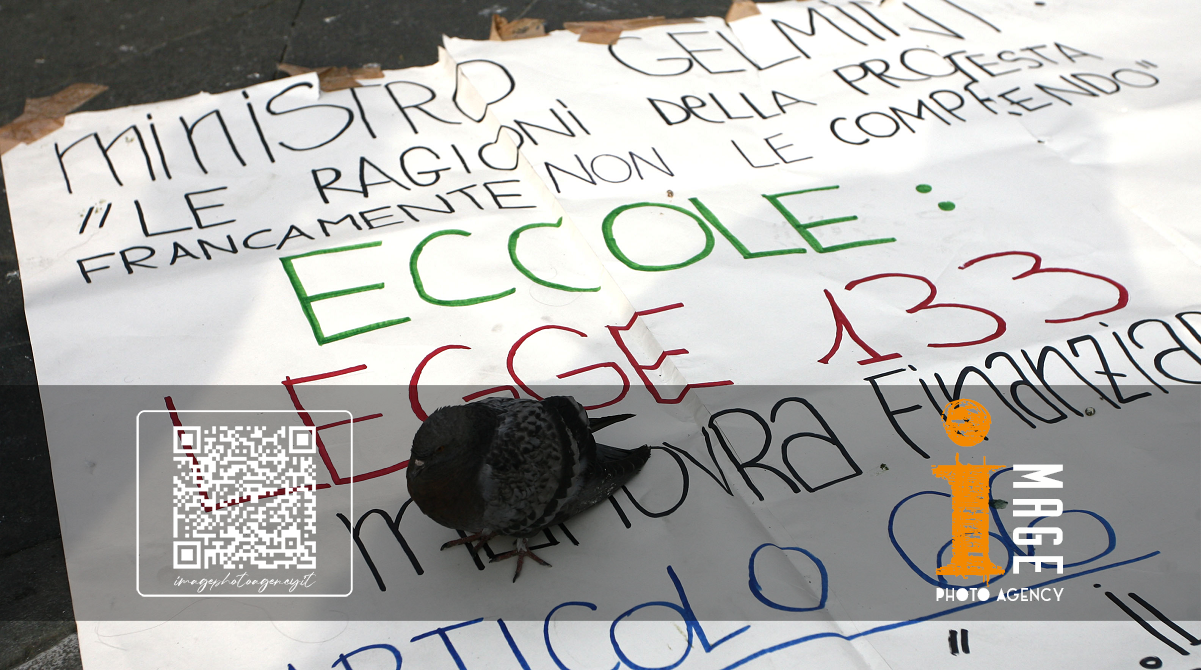 miniSTRO GELMINI:
"LE RAGIONI DELLA PROTESTA
FRANCAMENTE NON LE COMPRENDO"
ECCOLE:
LEGGE 133
FinanziaR
ARTICOLO 66
imagephotoagency.it
iMAGE
PHOTO AGENCY